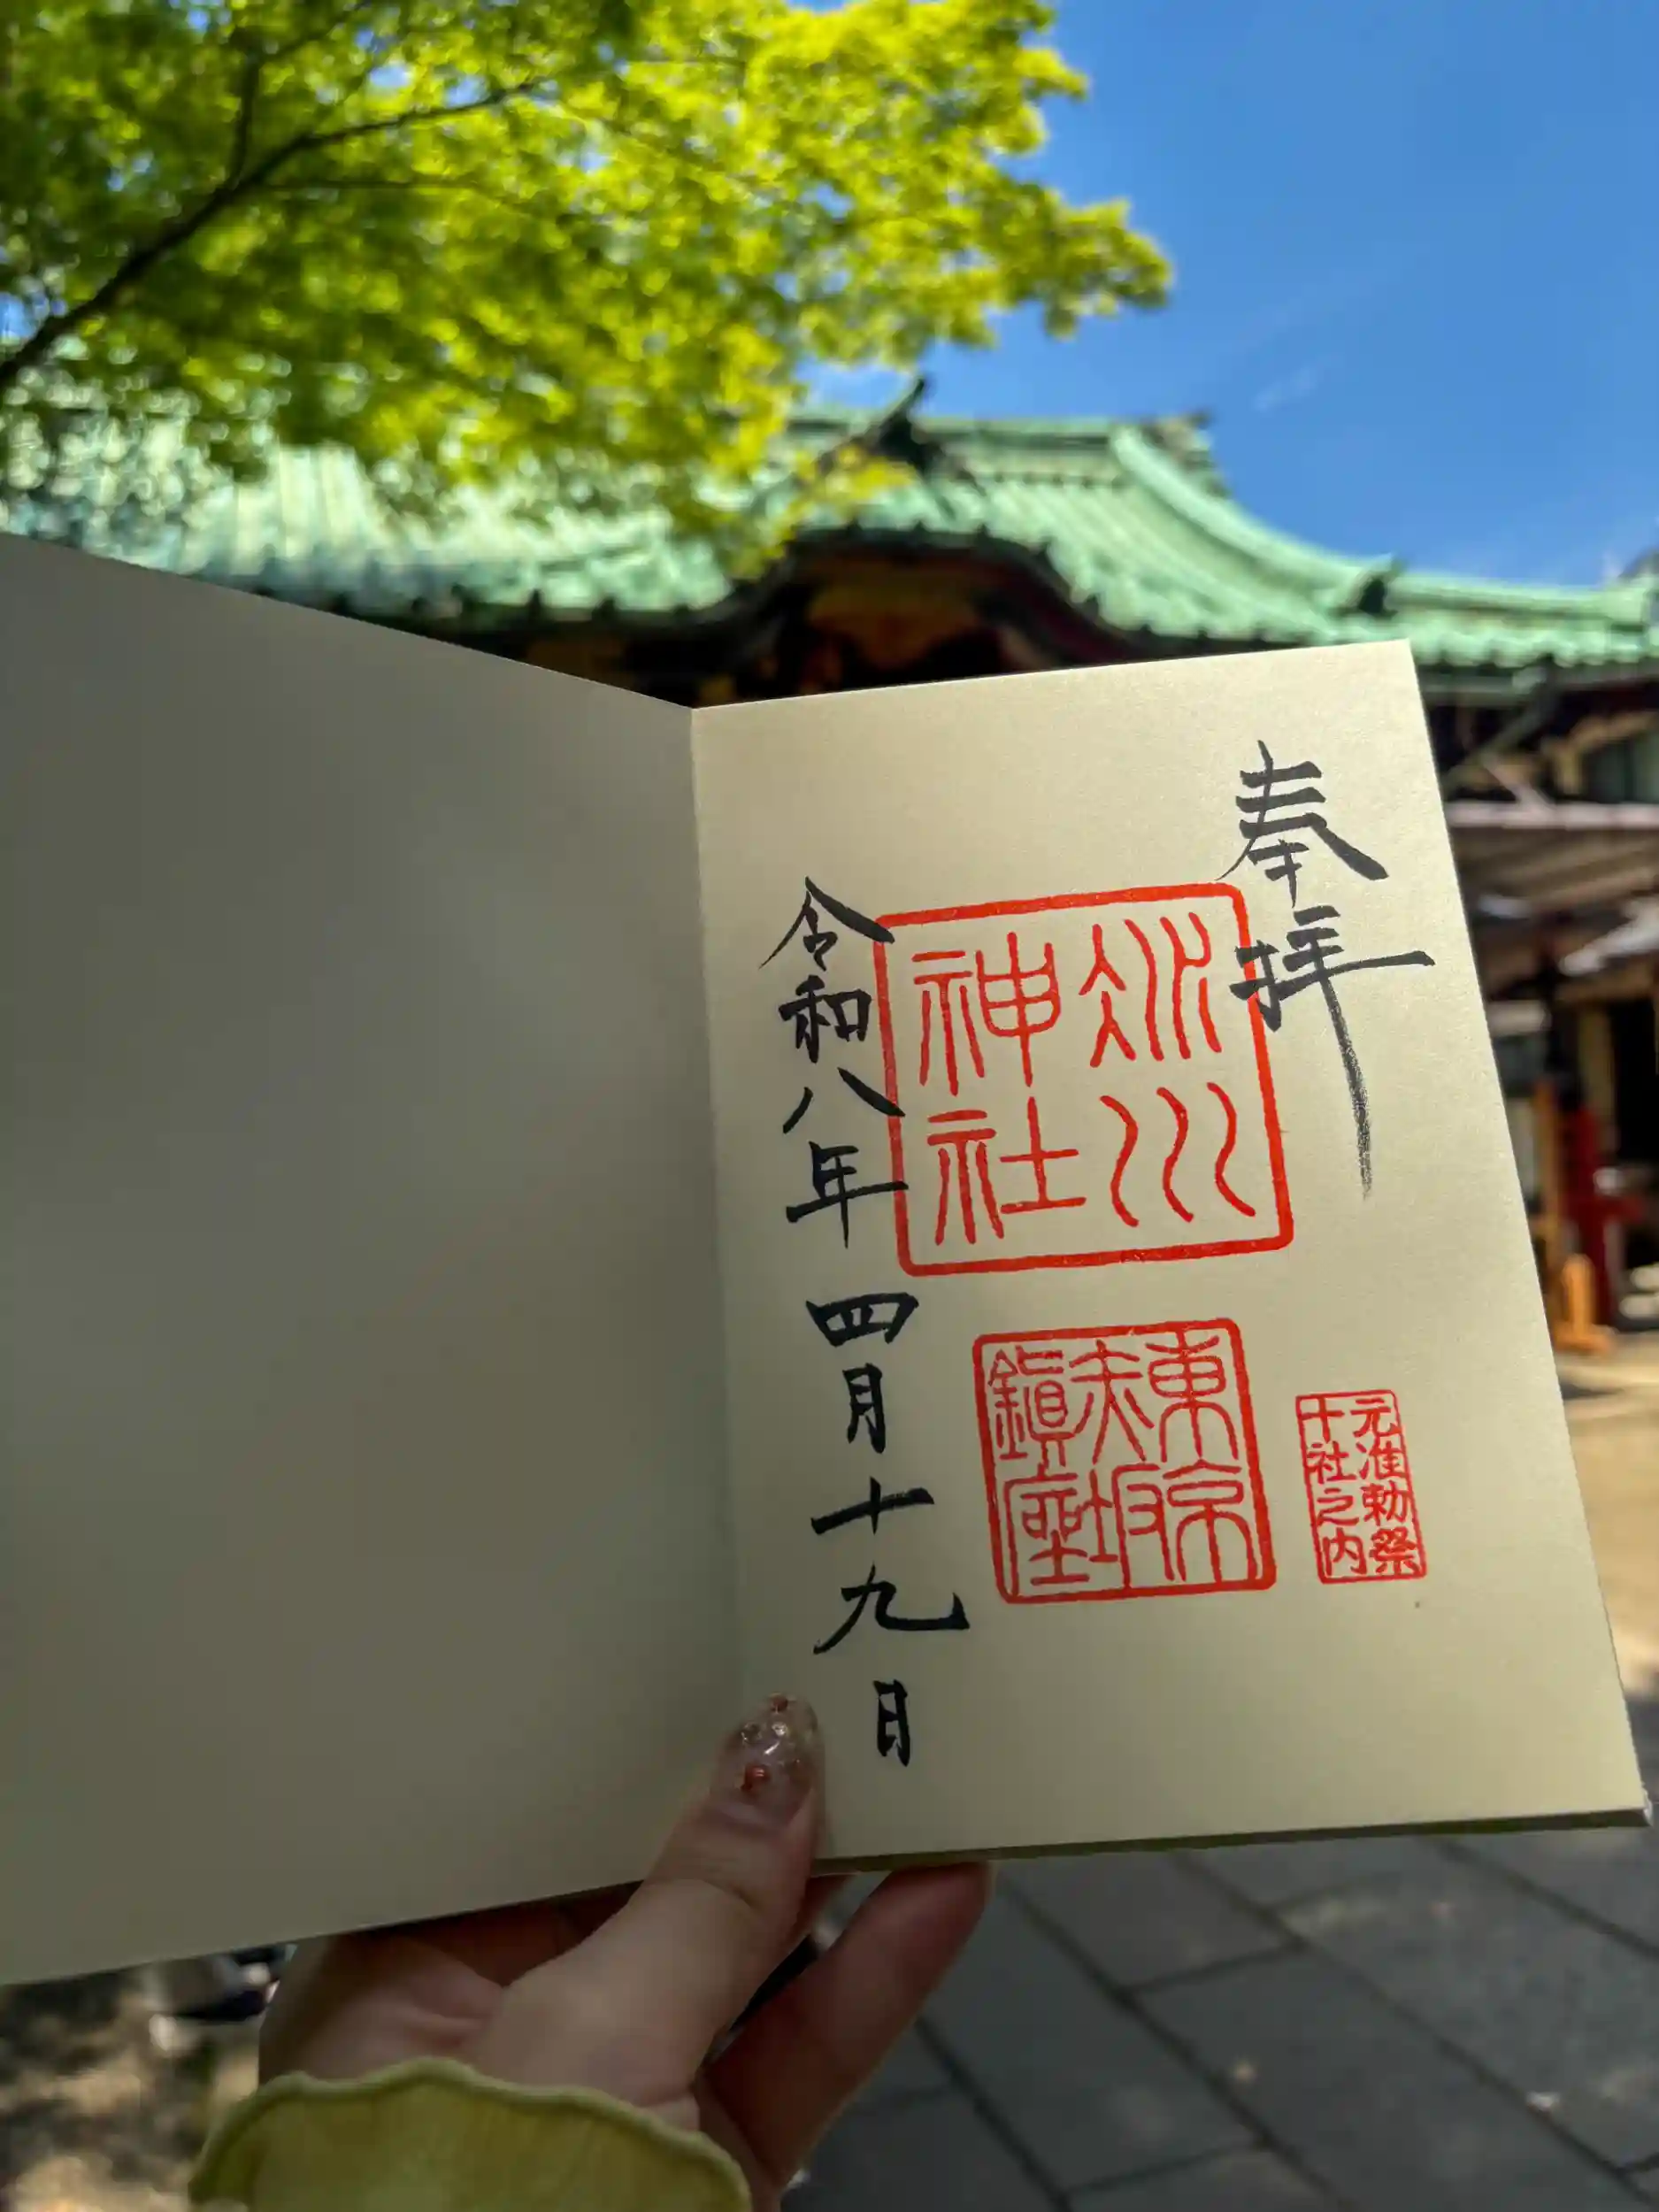 奉拝
氷川神社
東京赤坂鎮座
元准勅祭
十社之内
令和八年四月十九日